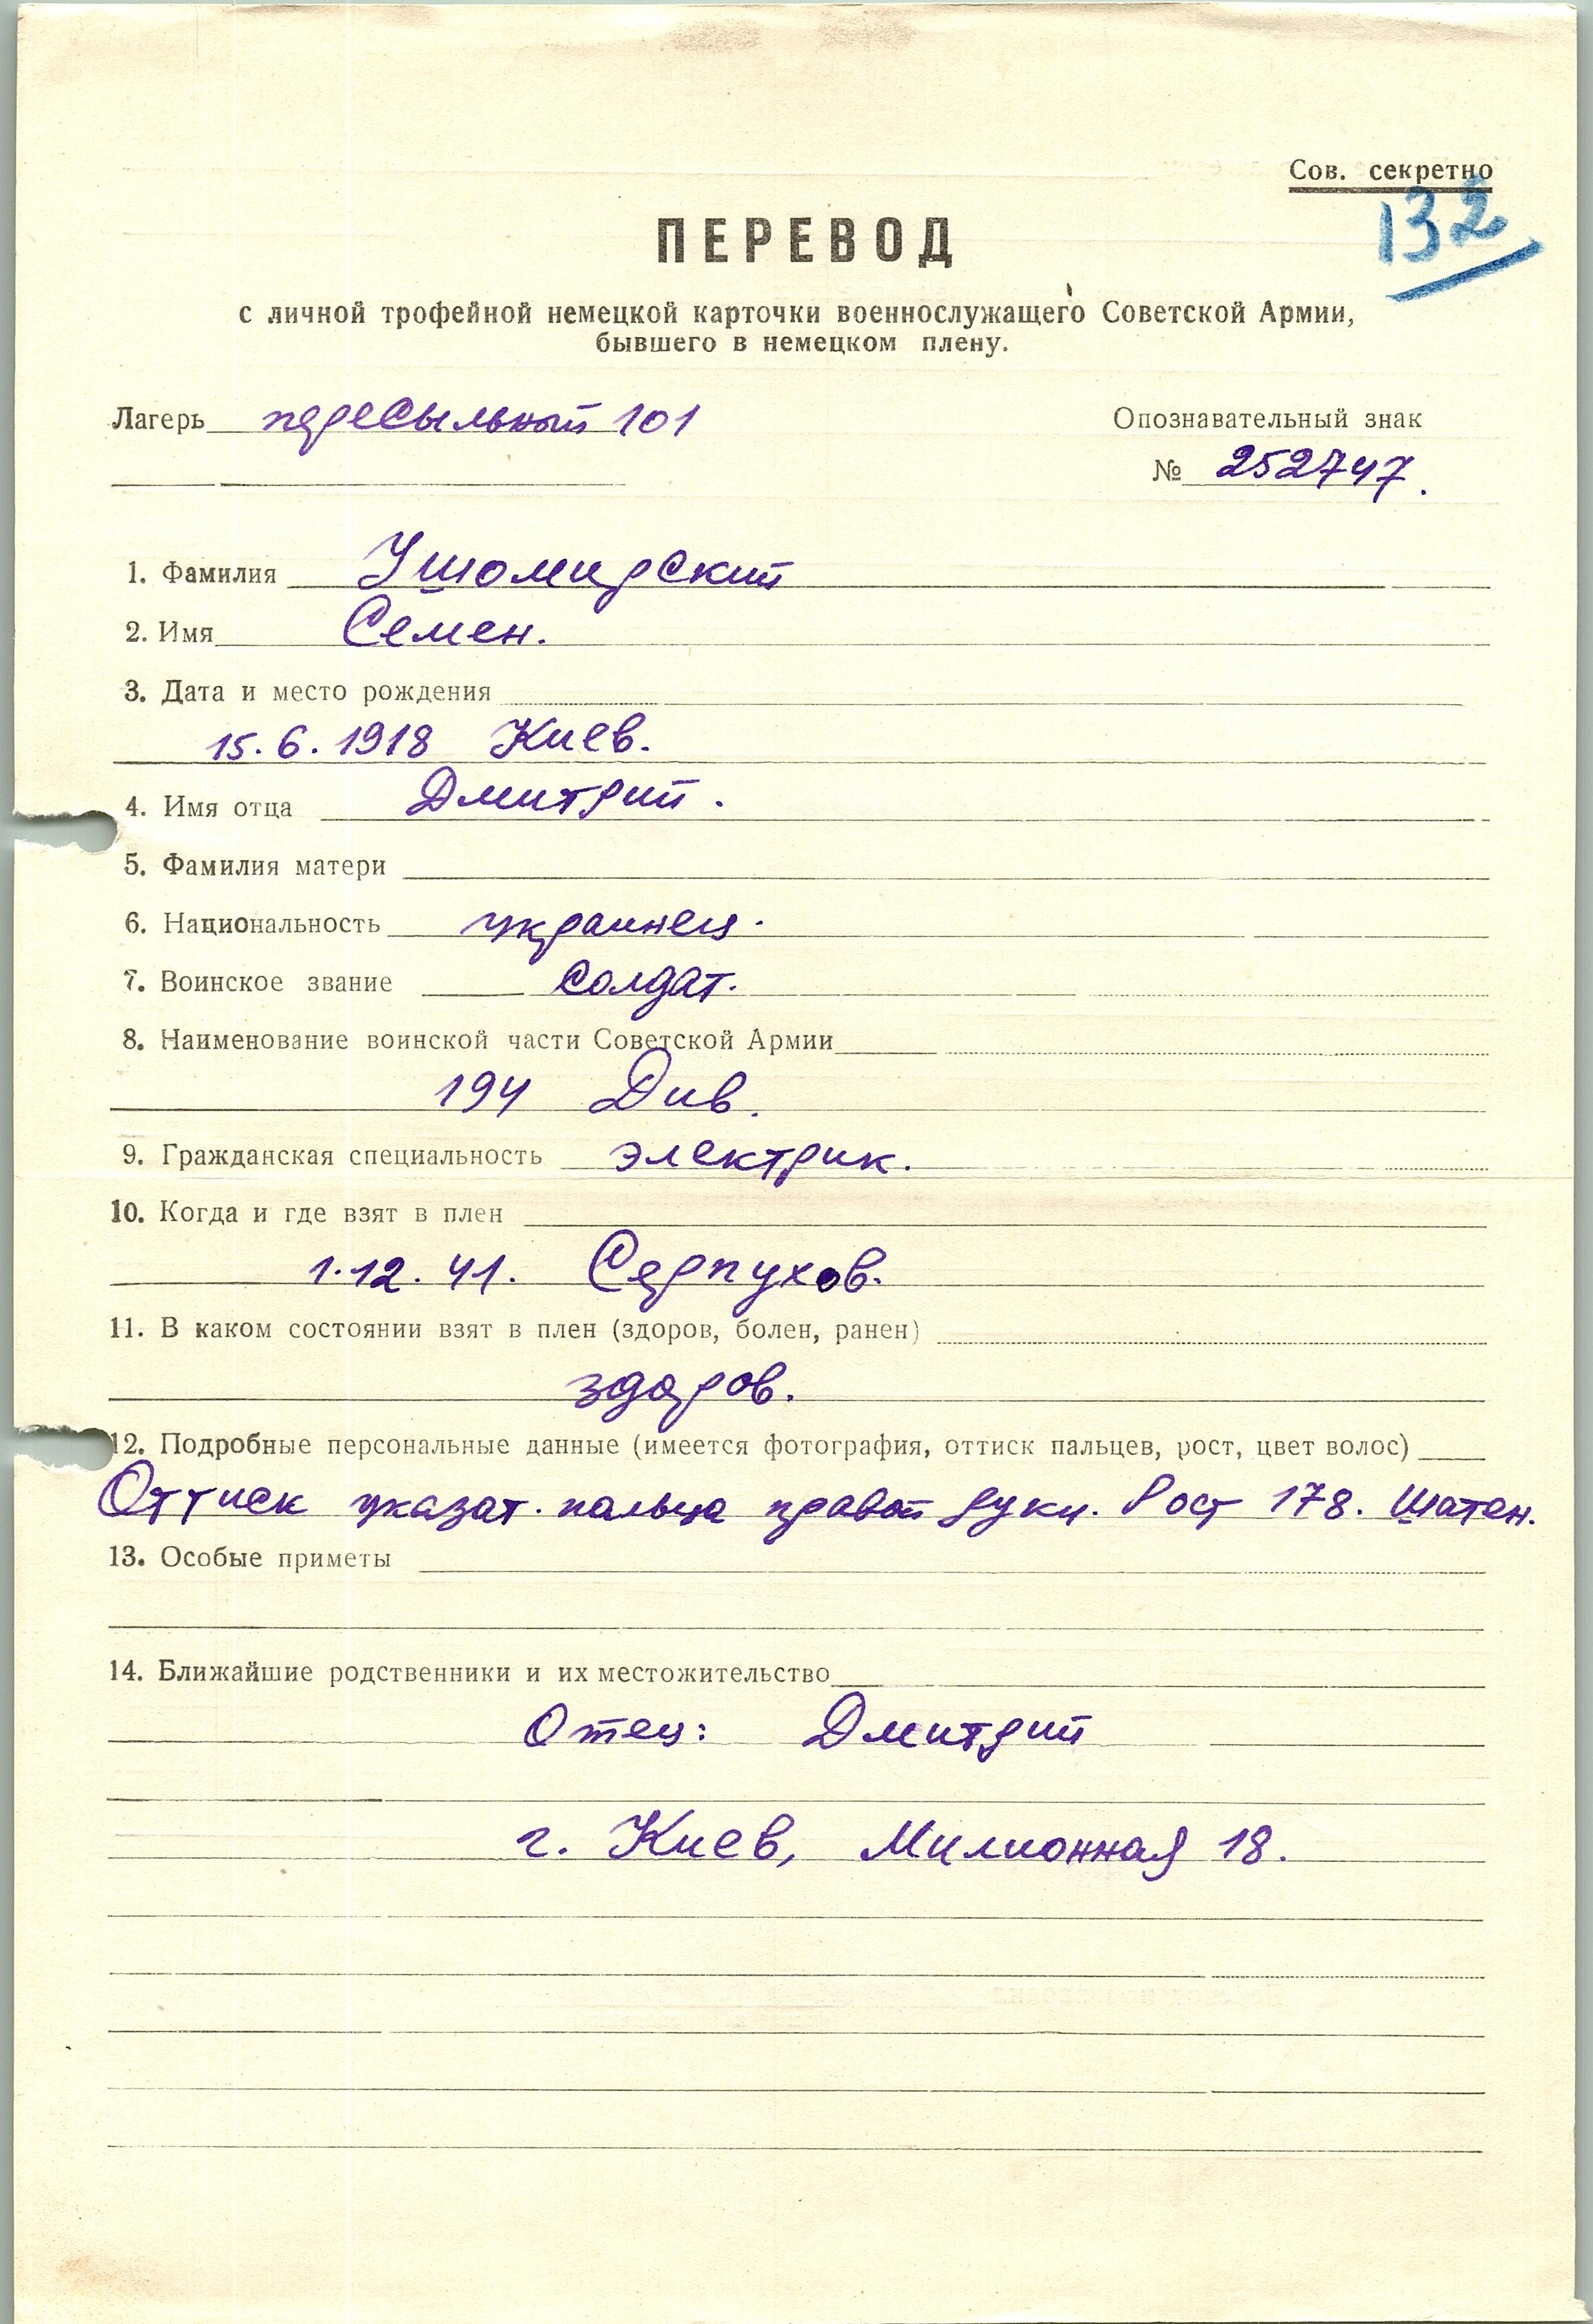 Сов. секретно
132
ПЕРЕВОД
с личной трофейной немецкой карточки военнослужащего Советской Армии,
бывшего в немецком плену.
Лагерь пересыльный 101
Опознавательный знак
№ 252747.
1. Фамилия Ушомирский
2. Имя Семен.
3. Дата и место рождения
15.6.1918 Киев.
4. Имя отца Дмитрий.
5. Фамилия матери
6. Национальность украинец.
7. Воинское звание солдат.
8. Наименование воинской части Советской Армии
194 Див.
9. Гражданская специальность электрик.
10. Когда и где взят в плен
1.12.41. Серпухов.
11. В каком состоянии взят в плен (здоров, болен, ранен)
здоров.
12. Подробные персональные данные (имеется фотография, оттиск пальцев, рост, цвет волос)
Оттиск указат. пальца правой руки. Рост 178. Шатен.
13. Особые приметы
14. Ближайшие родственники и их местожительство
Отец: Дмитрий
г. Киев, Милионная 18.